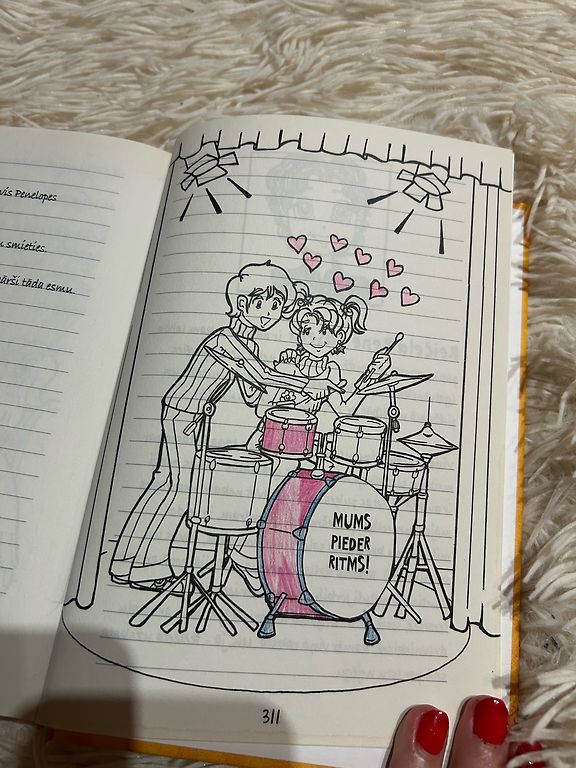 vis Penelopes
smieties.
tāda esmu.
MUMS
PIEDER
RITMS!
311